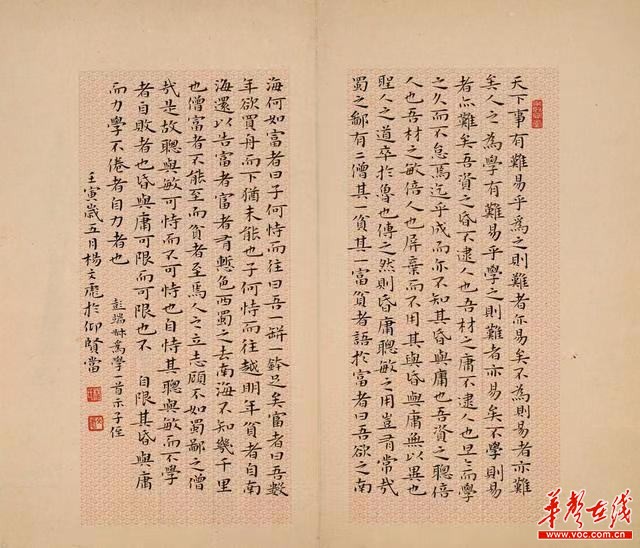 天下事有難易乎為之則難者亦易矣不為則易者亦難
矣人之為學有難易乎學之則難者亦易矣不學則易
者亦難矣吾資之昏不逮人也吾材之庸不逮人也旦旦而學
之久而不怠焉迄乎成而亦不知其昏與庸也吾資之聰倍
人也吾材之敏倍人也屏棄而不用其與昏與庸無以異也
聖人之道卒於魯也傳之然則昏庸聰敏之用豈有常哉
蜀之鄙有二僧其一貧其一富貧者語於富者曰吾欲之南
海何如富者曰子何恃而往曰吾一缾一鉢足矣富者曰吾數
年欲買舟而下猶未能也子何恃而往越明年貧者自南
海還以告富者富者有慙色西蜀之去南海不知幾千里
也僧富者不能至而貧者至焉人之立志顧不如蜀鄙之僧
哉是故聰與敏可恃而不可恃也自恃其聰與敏而不學
者自敗者也昏與庸可限而可限也不 自限其昏與庸
而力學不倦者自力者也
彭端淑為學一首示子侄
壬寅歲五月楊文彪於仰賢當
華聲在线
www.voc.com.cn